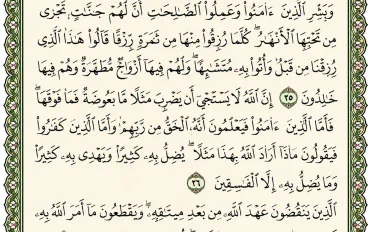 وَبَشِّرِ ٱلَّذِينَ ءَامَنُوا۟ وَعَمِلُوا۟ ٱلصَّـٰلِحَـٰتِ أَنَّ لَهُمْ جَنَّـٰتٍ تَجْرِى
مِن تَحْتِهَا ٱلْأَنْهَـٰرُ ۖ كُلَّمَا رُزِقُوا۟ مِنْهَا مِن ثَمَرَةٍ رِّزْقًا قَالُوا۟ هَـٰذَا ٱلَّذِى
رُزِقْنَا مِن قَبْلُ ۖ وَأُتُوا۟ بِهِۦ مُتَشَـٰبِهًا ۖ وَلَهُمْ فِيهَآ أَزْوَٰجٌ مُّطَهَّرَةٌ ۖ وَهُمْ فِيهَا
خَـٰلِدُونَ ٢٥ إِنَّ ٱللَّهَ لَا يَسْتَحْىِۦٓ أَن يَضْرِبَ مَثَلًا مَّا بَعُوضَةً فَمَا فَوْقَهَا ۚ
فَأَمَّا ٱلَّذِينَ ءَامَنُوا۟ فَيَعْلَمُونَ أَنَّهُ ٱلْحَقُّ مِن رَّبِّهِمْ ۖ وَأَمَّا ٱلَّذِينَ كَفَرُوا۟
فَيَقُولُونَ مَاذَآ أَرَادَ ٱللَّهُ بِهَـٰذَا مَثَلًا ۘ يُضِلُّ بِهِۦ كَثِيرًا وَيَهْدِى بِهِۦ كَثِيرًا ۚ
وَمَا يُضِلُّ بِهِۦٓ إِلَّا ٱلْفَـٰسِقِينَ ٢٦
ٱلَّذِينَ يَنقُضُونَ عَهْدَ ٱللَّهِ مِنۢ بَعْدِ مِيثَـٰقِهِۦ وَيَقْطَعُونَ مَآ أَمَرَ ٱللَّهُ بِهِۦٓ